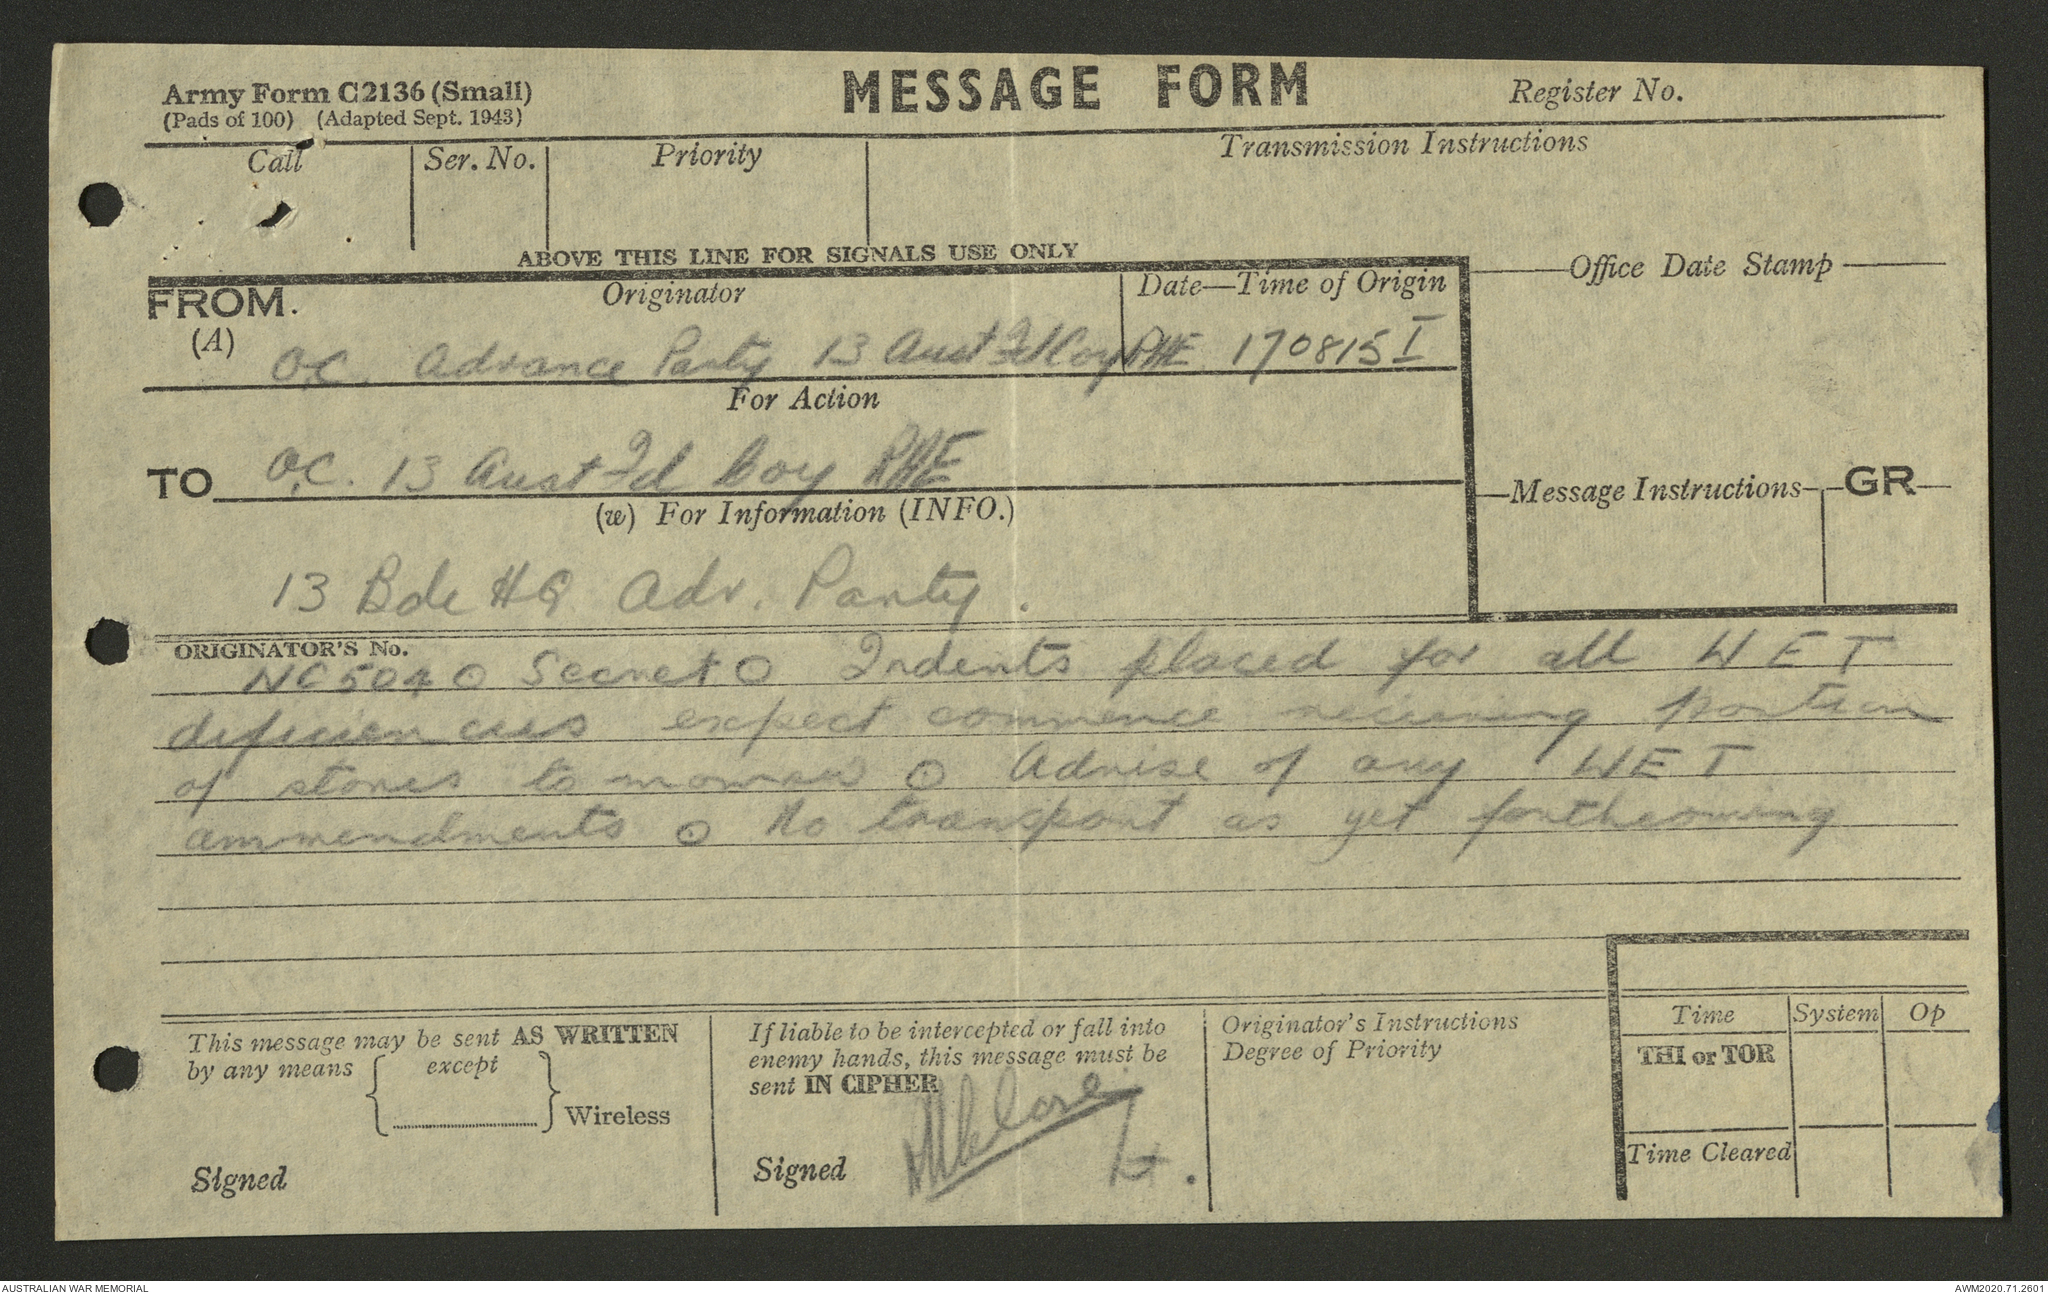 Army Form C2136 (Small)
(Pads of 100) (Adapted Sept. 1943)
MESSAGE FORM
Register No.
Call
Ser. No.
Priority
Transmission Instructions
ABOVE THIS LINE FOR SIGNALS USE ONLY
FROM.
(A)
Originator
Date—Time of Origin
Office Date Stamp
O.C. Advance Party 13 Aust Fd Coy RAE 170815 I
For Action
TO O.C. 13 Aust Fd Coy RAE
(w) For Information (INFO.)
Message Instructions
GR
13 Bde HQ Adv. Party.
ORIGINATOR'S No.
NC504 O Secret O Indents placed for all WET
deficiencies expect commence receiving portion
of stores to morrow O Advise of any WET
ammendments O No transport as yet forthcoming
This message may be sent AS WRITTEN
by any means except
Wireless
Signed
If liable to be intercepted or fall into
enemy hands, this message must be
sent IN CIPHER
Signed
Lt.
Originator's Instructions
Degree of Priority
Time System Op
THI or TOR
Time Cleared
AUSTRALIAN WAR MEMORIAL
AWM2020.71.2601